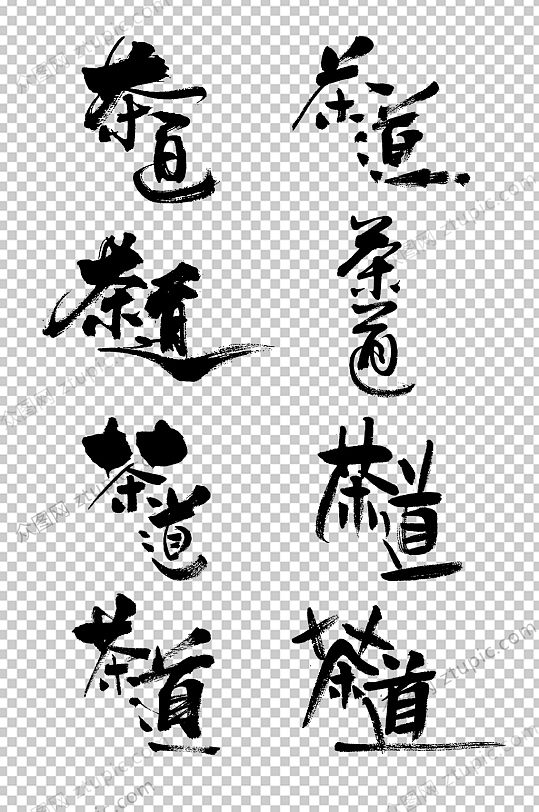 茶道 茶道
茶道 茶道
茶道 茶道
茶道 茶道
众图网 ztupic.com